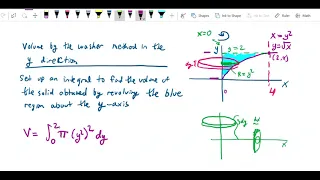 Volume by the washer method in the
y direction
Set up an integral to find the volume of
the solid obtained by revolving the blue
region about the y-axis
V = ∫₀² π (y²)² dy
x=0
y
y=2
x=y²
y=√x
x=y²
0
4
x
dy
x